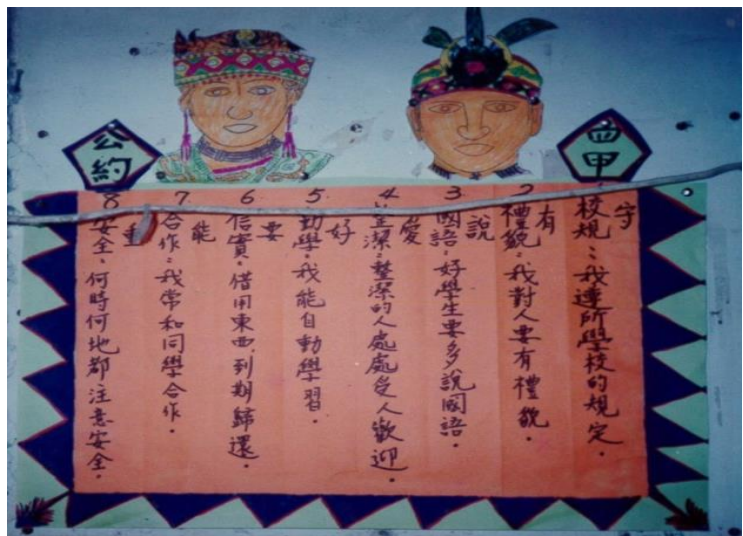 四甲
公約
守校規:我遵所學校的規定。
2 有禮貌:我對人要有禮貌。
3 說國語:好學生要多說國語。
4 愛整潔:整潔的人處處受人歡迎。
5 好勤學:我能自動學習。
6 要信實:借用東西,到期歸還。
7 能合作:我常和同學合作。
8 重安全:何時何地都注意安全。